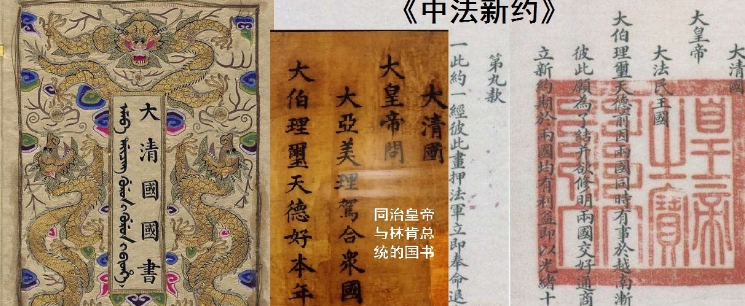 《中法新约》
大清國
大皇帝
大法民主國
大伯理璽天德前因兩國同時有事於越南漸
彼此願為了結并欲修明兩國交好通商
立新約期於兩國均有利益即以光緒十
皇帝之寶
第九款
一此約一經彼此畫押法軍立即奉命退
大清國
大皇帝問
大亞美理駕合衆國
大伯理璽天德好本年
同治皇帝
与林肯总
统的国书
大清國國書